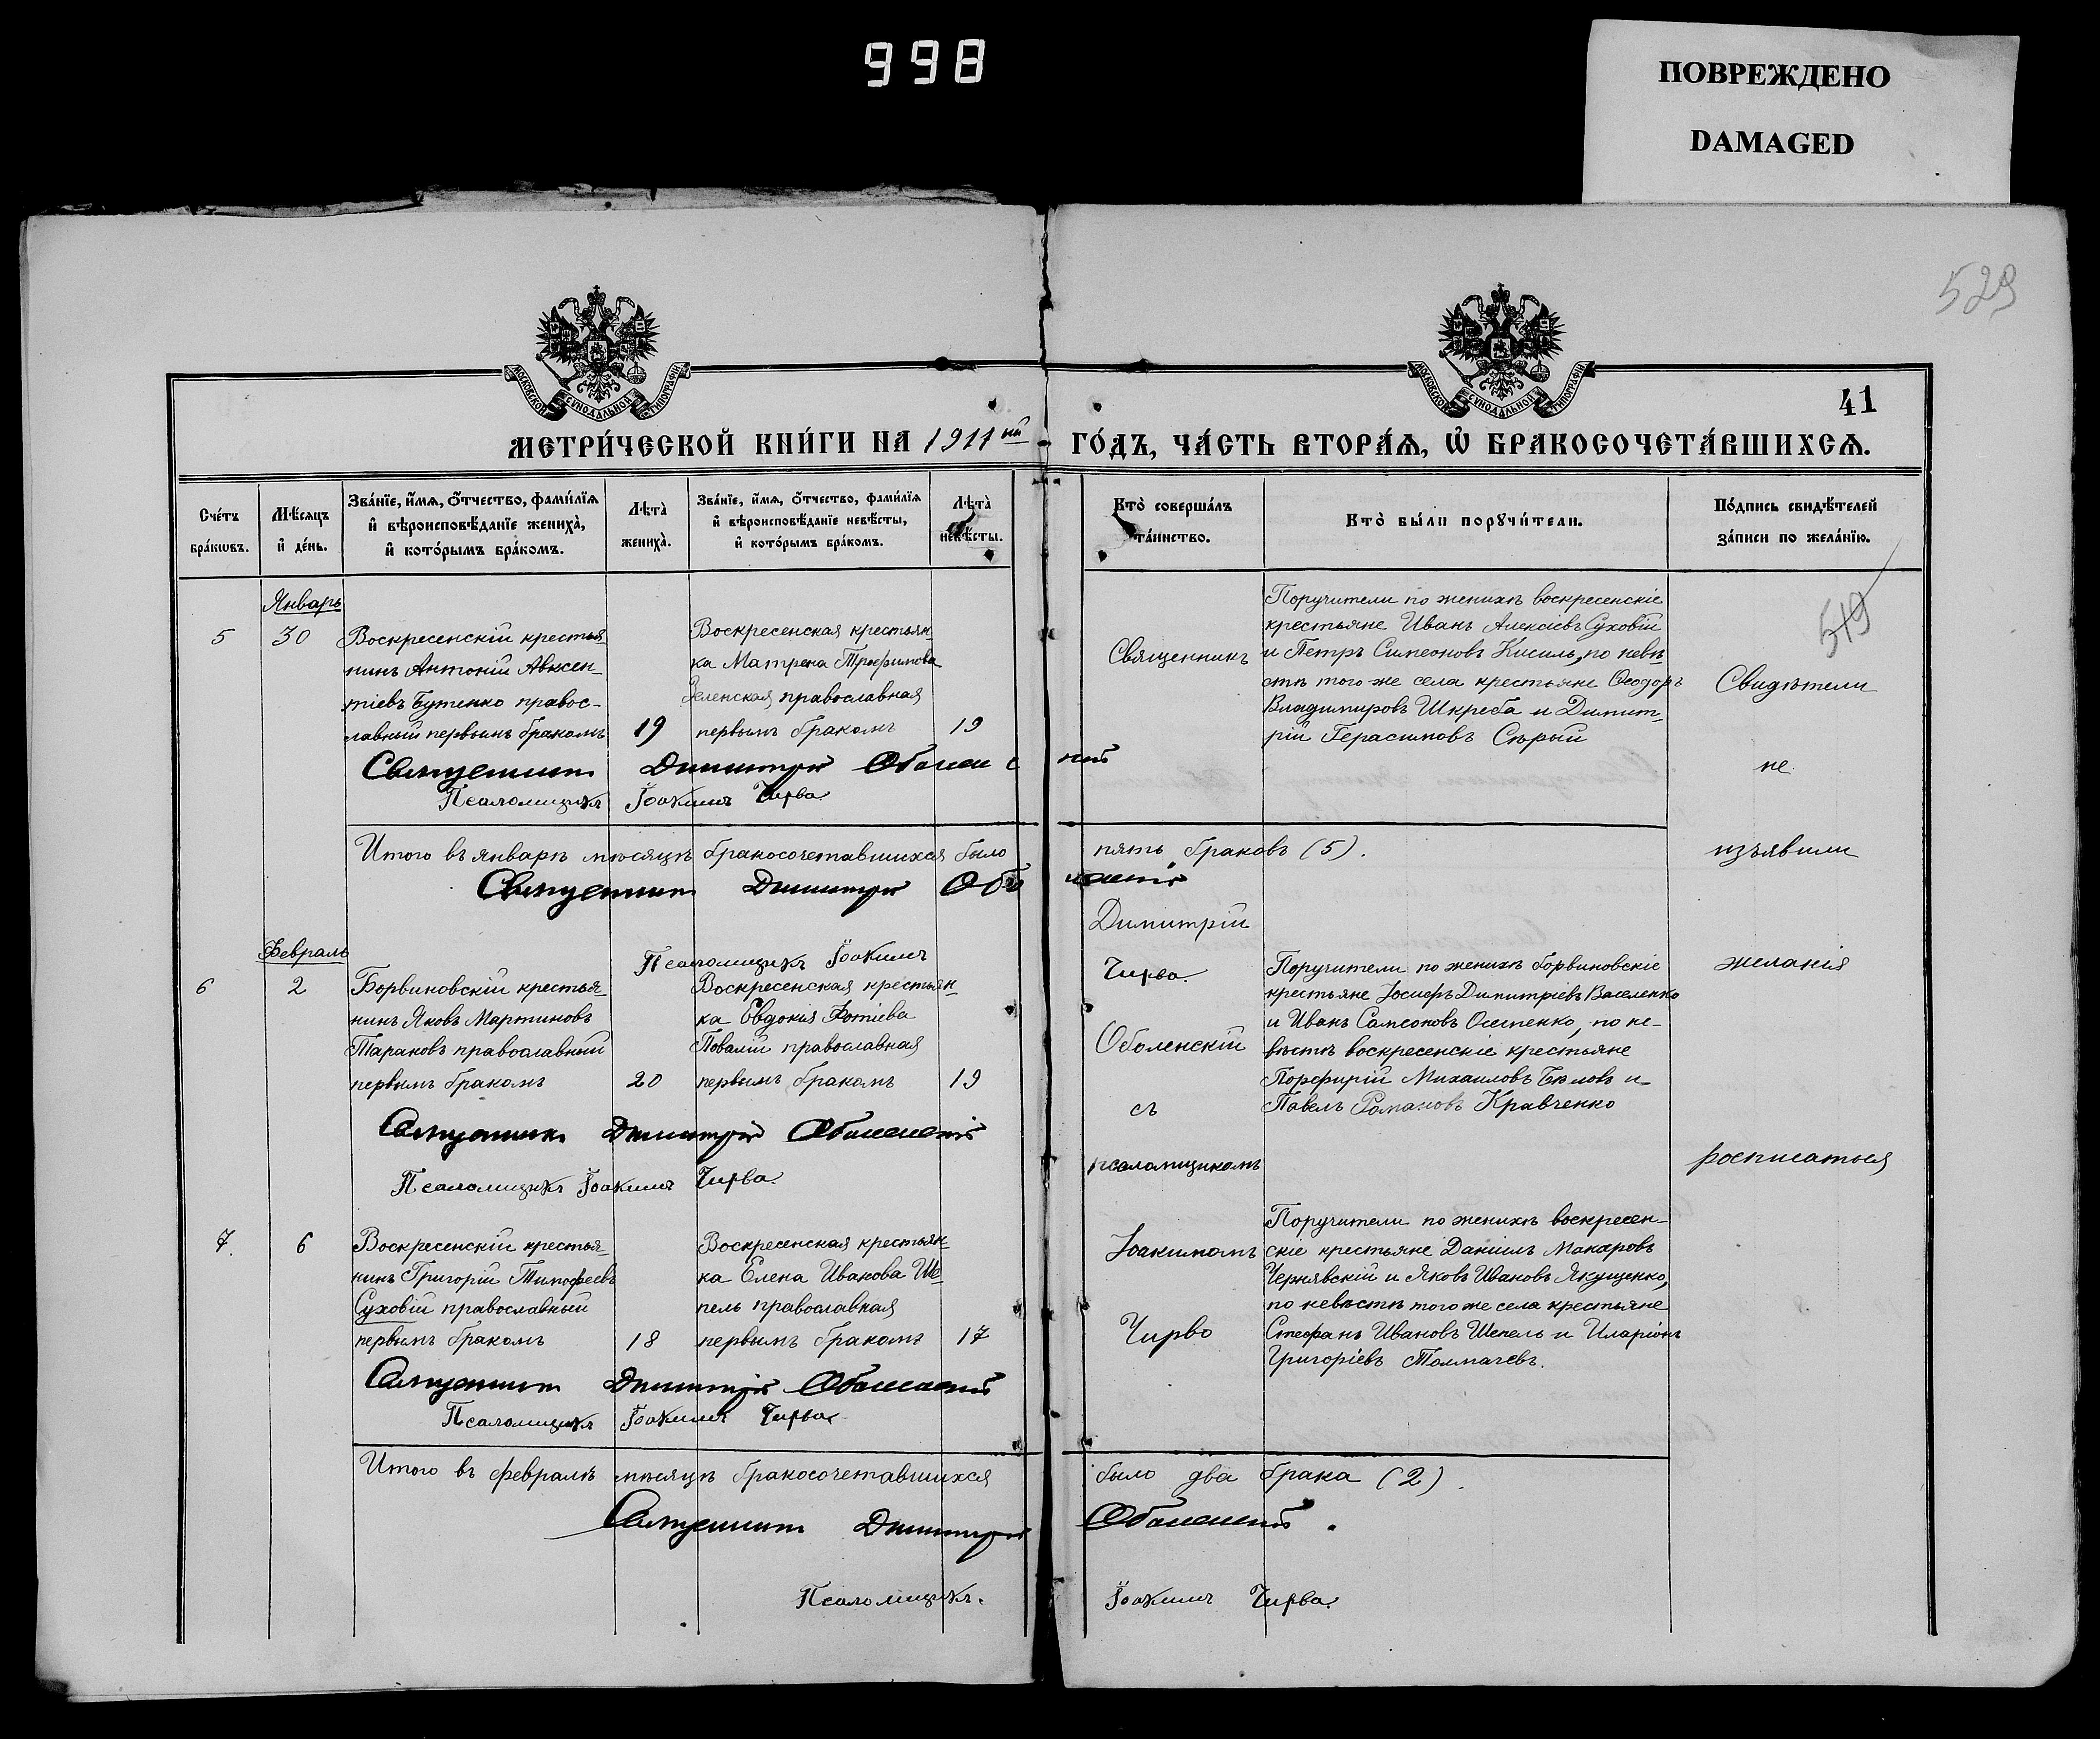 998
ПОВРЕЖДЕНО
DAMAGED
529
МОСКОВСКОЙ СУНОДАЛЬНОЙ ТИПОГРАФІИ
МОСКОВСКОЙ СУНОДАЛЬНОЙ ТИПОГРАФІИ
41
МЕТРИ́ЧЕСКОЙ КНИ́ГИ НА 1911ый ГО́ДЪ, ЧА́СТЬ ВТОРА́Ѧ, Ѡ҆ БРАКОСОЧЕТА́ВШИХСѦ.
Сче́тъ
бра́кѡвъ.
Мѣ́сѧцъ
и҆ де́нь.
Зва́нїе, и҆́мѧ, ѻ҆́тчество, фами́лїѧ
и҆ вѣроисповѣ́данїе жениха̀,
и҆ кото́рымъ бра́комъ.
Лѣта̀
жениха̀.
Зва́нїе, и҆́мѧ, ѻ҆́тчество, фами́лїѧ
и҆ вѣроисповѣ́данїе невѣ́сты,
и҆ кото́рымъ бра́комъ.
Лѣта̀
невѣ́сты.
Кто̀ соверша́лъ
та́инство.
Кто̀ бы́ли порꙋчи́тели.
По́дпись свидѣ́телей
за́писи по жела́нїю.
519
Январь
5
30
Воскресенскій крестья-
нинъ Антоній Авксен-
тіевъ Бутенко правос-
лавный первымъ бракомъ
19
Воскресенская крестьян-
ка Матрена Трофимова
Зеленская православная
первымъ бракомъ
19
Поручители по женихѣ воскресенскіе
крестьяне Иванъ Алексіевъ Суховій
и Петръ Симеоновъ Кисиль, по невѣ-
стѣ того-же села крестьяне Ѳеодоръ
Владимировъ Шкреба и Димит-
рій Герасимовъ Сѣрый
Священникъ Димитрій Оболенскій
Псаломщикъ Іоакимъ Чирва
Итого въ январѣ мѣсяцѣ бракосочетавшихся было пять браковъ (5).
Священникъ Димитрій Оболенскій
Псаломщикъ Іоакимъ Чирва.
Февраль
6
2
Борвиновскій крестья-
нинъ Яковъ Мартиновъ
Тарановъ православный
первымъ бракомъ
20
Воскресенская крестьян-
ка Евдокія Фотіева
Повалій православная
первымъ бракомъ
19
Поручители по женихѣ борвиновскіе
крестьяне Іосифъ Димитріевъ Василенко
и Иванъ Самсоновъ Осипенко, по не-
вѣстѣ воскресенскіе крестьяне
Порфирій Михаиловъ Бѣловъ и
Павелъ Романовъ Кравченко
Священникъ Димитрій Оболенскій
Псаломщикъ Іоакимъ Чирва.
7.
6
Воскресенскій крестья-
нинъ Григорій Тимофеевъ
Суховій православный
первымъ бракомъ
18
Воскресенская крестьян-
ка Елена Иванова Ше-
пель православная
первымъ бракомъ
17
Поручители по женихѣ воскресен-
скіе крестьяне Даніилъ Макаровъ
Чернявскій и Яковъ Ивановъ Якущенко,
по невѣстѣ того же села крестьяне
Стефанъ Ивановъ Шепель и Иларіонъ
Григоріевъ Толмачевъ.
Священникъ Димитрій Оболенскій
Псаломщикъ Іоакимъ Чирва
Священникъ
Димитрій
Оболенскій
съ
псаломщикомъ
Іоакимомъ
Чирво
Свидѣтели
не
изъявили
желанія
росписаться
Итого въ февралѣ мѣсяцѣ бракосочетавшихся было два брака (2).
Священникъ Димитрій Оболенскій.
Псаломщикъ. Іоакимъ Чирва.